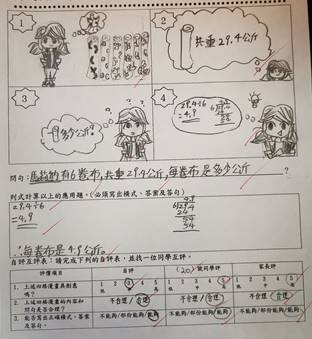 1
2
共重29.4公斤
3
一卷多少公斤?
4
29.4÷6
=4.9
問句:馬莉的有6卷布,共重29.4公斤,每卷布是多少公斤?
列式計算以上的應用題。(必須寫出橫式、答案及答句)
29.4÷6
=4.9
4.9
6√29.4
24
54
54
∴每卷布是4.9公斤。
自評互評表:請完成下列的自評表,並找一位同學互評。
評價項目 自評 (20)號同學評 家長評
1. 上述四格漫畫具創意嗎? 1 2 3 4 5 1 2 3 4 5 1 2 3 4 5
2. 上述四格漫畫的內容和問句是否合理? 不合理/合理 不合理/合理 不合理/合理
3. 能否寫出正確橫式、答案及答句。 不能夠/部份能夠/能夠 不能夠/部份能夠/能夠 不能夠/部份能夠/能夠